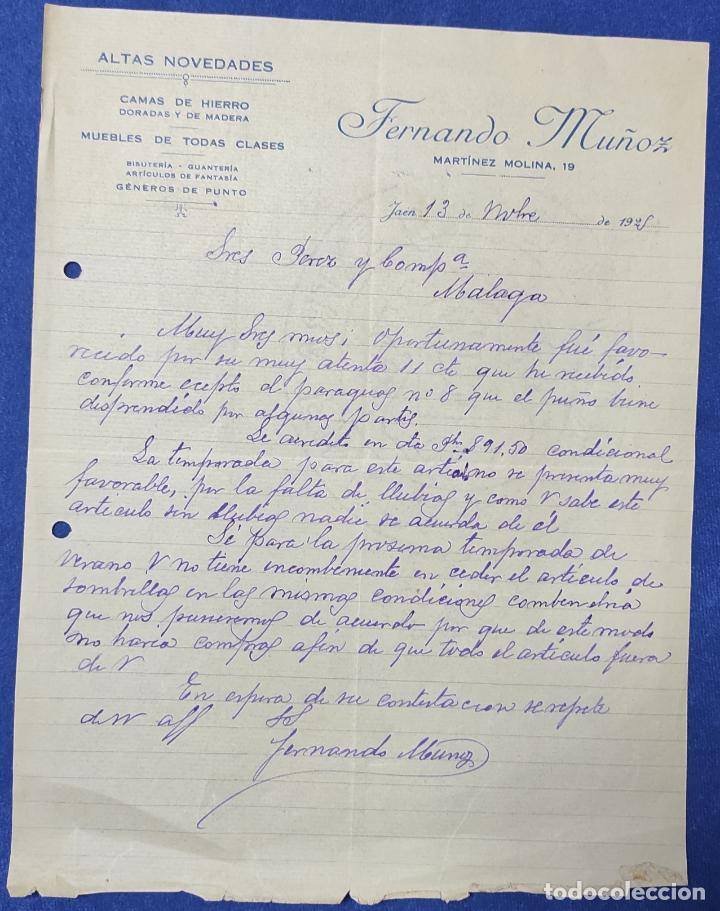 ALTAS NOVEDADES
CAMAS DE HIERRO
DORADAS Y DE MADERA
MUEBLES DE TODAS CLASES
BISUTERÍA - GUANTERÍA
ARTÍCULOS DE FANTASÍA
GÉNEROS DE PUNTO
Fernando Muñoz
MARTÍNEZ MOLINA, 19
Jaén 13 de Nvbre de 192
Sres Perez y Compª
Malaga
Muy Sres mios; Oportunamente fué favo-
recido por su muy atenta 11 cte que he recibido
conforme cepto el paraguas nº 8 que el puño biene
disprendido por algunas partes.
Le acredito en cta Pts 891.50 condicional
La temporada para este articulo no se presenta muy
favorable, por la falta de llubias y como V sabe este
articulo sin llubias nadie se acuerda de él
Sé para la prosima temporada de
verano V no tiene incombeniente en ceder el artículo de
sombrillas en las mismas condiciones combendria
que nos pusieramos de acuerdo por que de este modo
no haria compras afin de que todo el articulo fuera
de V
En espera de su contestacion se repete
de V aff SS
Fernando Muñoz
todocoleccion